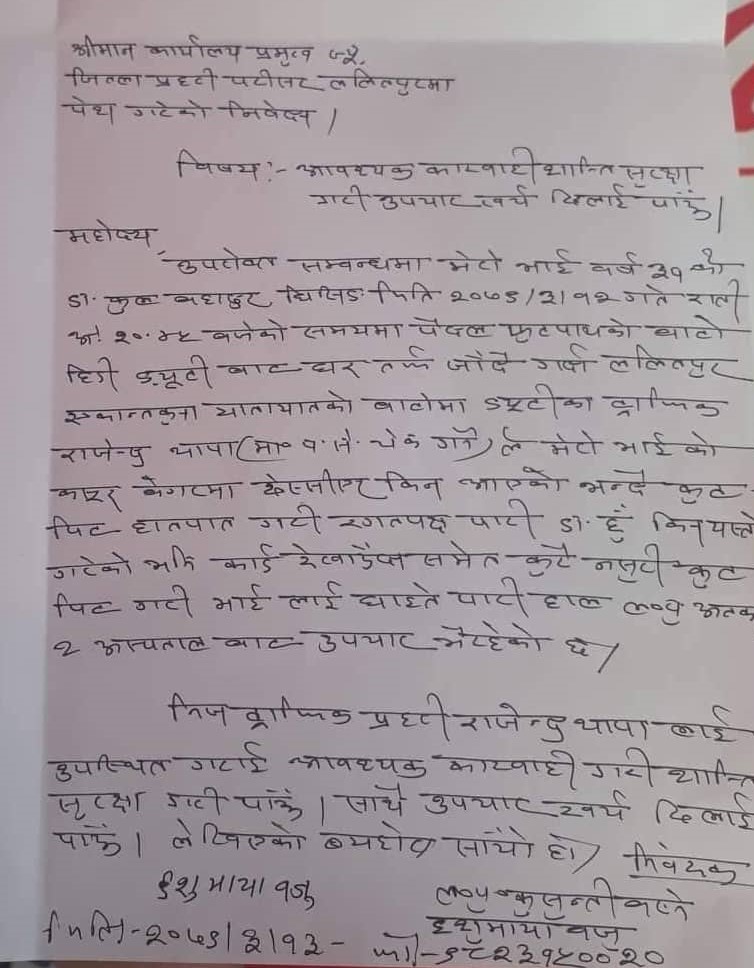 श्रीमान कार्यालय प्रमुख ज्यू,
जिल्ला प्रहरी परिसर ललितपुरमा
पेश गरेको निवेदन ।
विषय :- आवश्यक कारवाही शान्ति सुरक्षा
गरी उपचार खर्च दिलाई पाऊँ ।
महोदय,
उपरोक्त सम्बन्धमा मेरो भाई वर्ष ३१ को
डा. कुल बहादुर मिति २०७८/३/१२ गते राती
अं २०.४५ बजेको समयमा पैदल फुटपाथको बाटो
हिडी ड्यूटी बाट घर तर्फ जाँदै गर्दा ललितपुर
एकान्तकुना यातायातको बाटोमा ड्युटीका ट्राफिक
राजेन्द्र थापा (मा० प. से. चेक गर्ने) ले मेरो भाई को
किन आएको भन्दै कुट
पिट हातपात गरी रगतपक्ष पारी डा. हुँ किन यस्तो
गरेको भनि कार्ड देखाउँदा समेत कुटै नसुनी कुट
पिट गरी भाई लाई घाइते पारी हाल
अस्पताल बाट उपचार भैरहेको छ ।
निज ट्राफिक प्रहरी राजेन्द्र थापा लाई
उपस्थित गराई आवश्यक कारवाही गरी शान्ति
सुरक्षा गरी पाऊँ । साथै उपचार खर्च दिलाई
पाऊँ । लेखिएको ब्यहोरा साँचो हो । निवेदक
ईशु माया वजु
ल०पु नखुन्ती बस्ने
ईशु माया वजु
मिति- २०७८/३/१३ - फो- ९८२३१५००२०